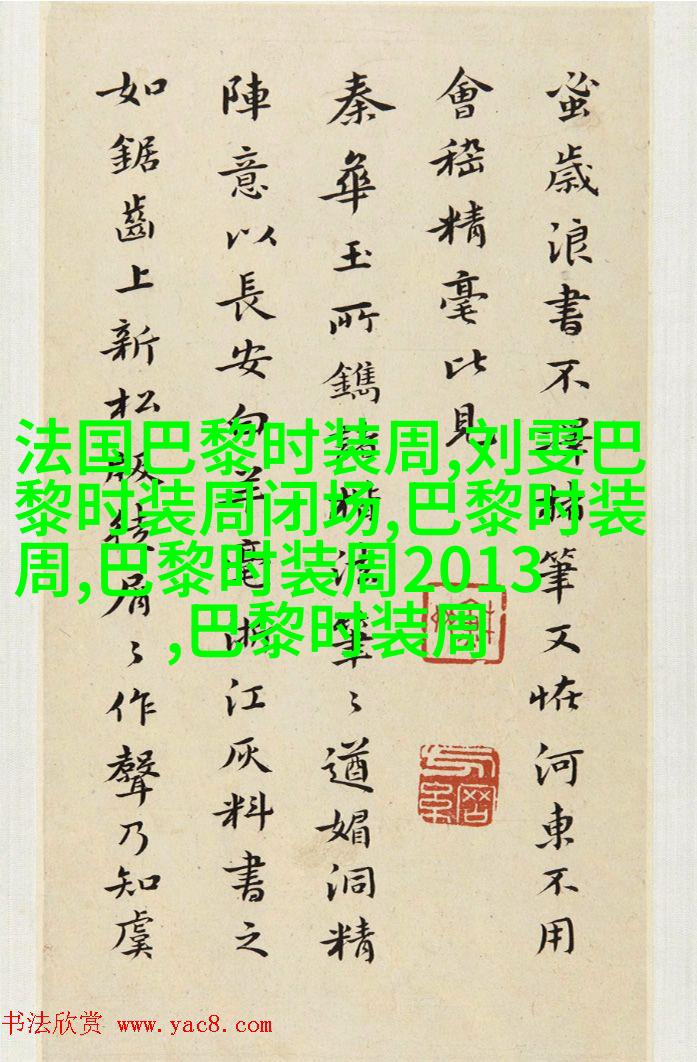 蚤歲浪書不擇筆又恠河東不用
會稽精毫比見
秦華玉所鐫筆々遒媚洞精
陣意以長安白羊毫江灰料書之
如鋸齒上新松版屑々作聲乃知虞
法国巴黎时装周,刘雯巴
黎时装周闭场,巴黎时装
周,巴黎时装周2013
,巴黎时装周
书法欣赏 www.yac8.com